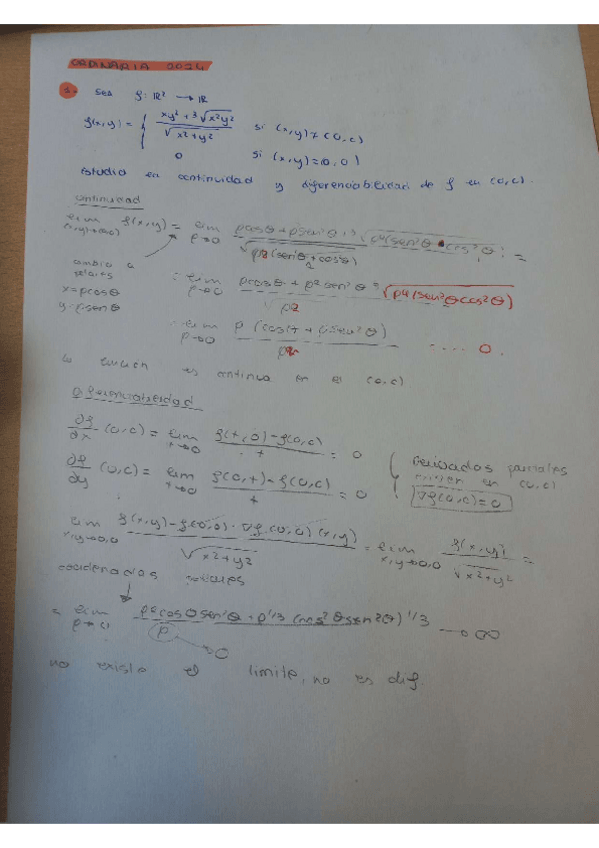 ORDINARIA 2024
1. Sea f: ℝ² → ℝ
f(x,y) = { xy² + ³√x²y² / √x²+y² si (x,y) ≠ (0,0)
0 si (x,y)=(0,0)
estudio en continuidad y diferenciabilidad de f en (0,0).
continuidad
lim (x,y)→(0,0) f(x,y) = lim ρ→0 ρcosθ + ρsen²θ + ³√ρ⁴(sen²θ · cos²θ) / √ρ²(sen²θ+cos²θ) =
cambio a
polares
x=ρcosθ
y=ρsenθ
= lim ρ→0 ρcosθ + ρ² sen²θ ³√ρ⁴(sen²θcos²θ) / √ρ²
lim ρ→0 ρ ( / ρ² .... 0.
es continua en el (0,0)
Diferenciabilidad
∂f/∂x (0,0) = lim t→0 f(t,0)-f(0,0) / t = 0
∂f/∂y (0,0) = lim t→0 f(0,t)-f(0,0) / t = 0
derivadas parciales
existen en (0,0)
∇f(0,0)=0
lim x,y→0,0 f(x,y)-f(0,0)-∇f(0,0)(x,y) / √x²+y² = lim x,y→0,0 f(x,y) / √x²+y² =
coordenadas polares
= lim ρ→0 ρ²cosθsen²θ + ρ^1/3 (cos²θsen²θ)^1/3 / ρ → ∞
0
no existe el limite, no es dif.